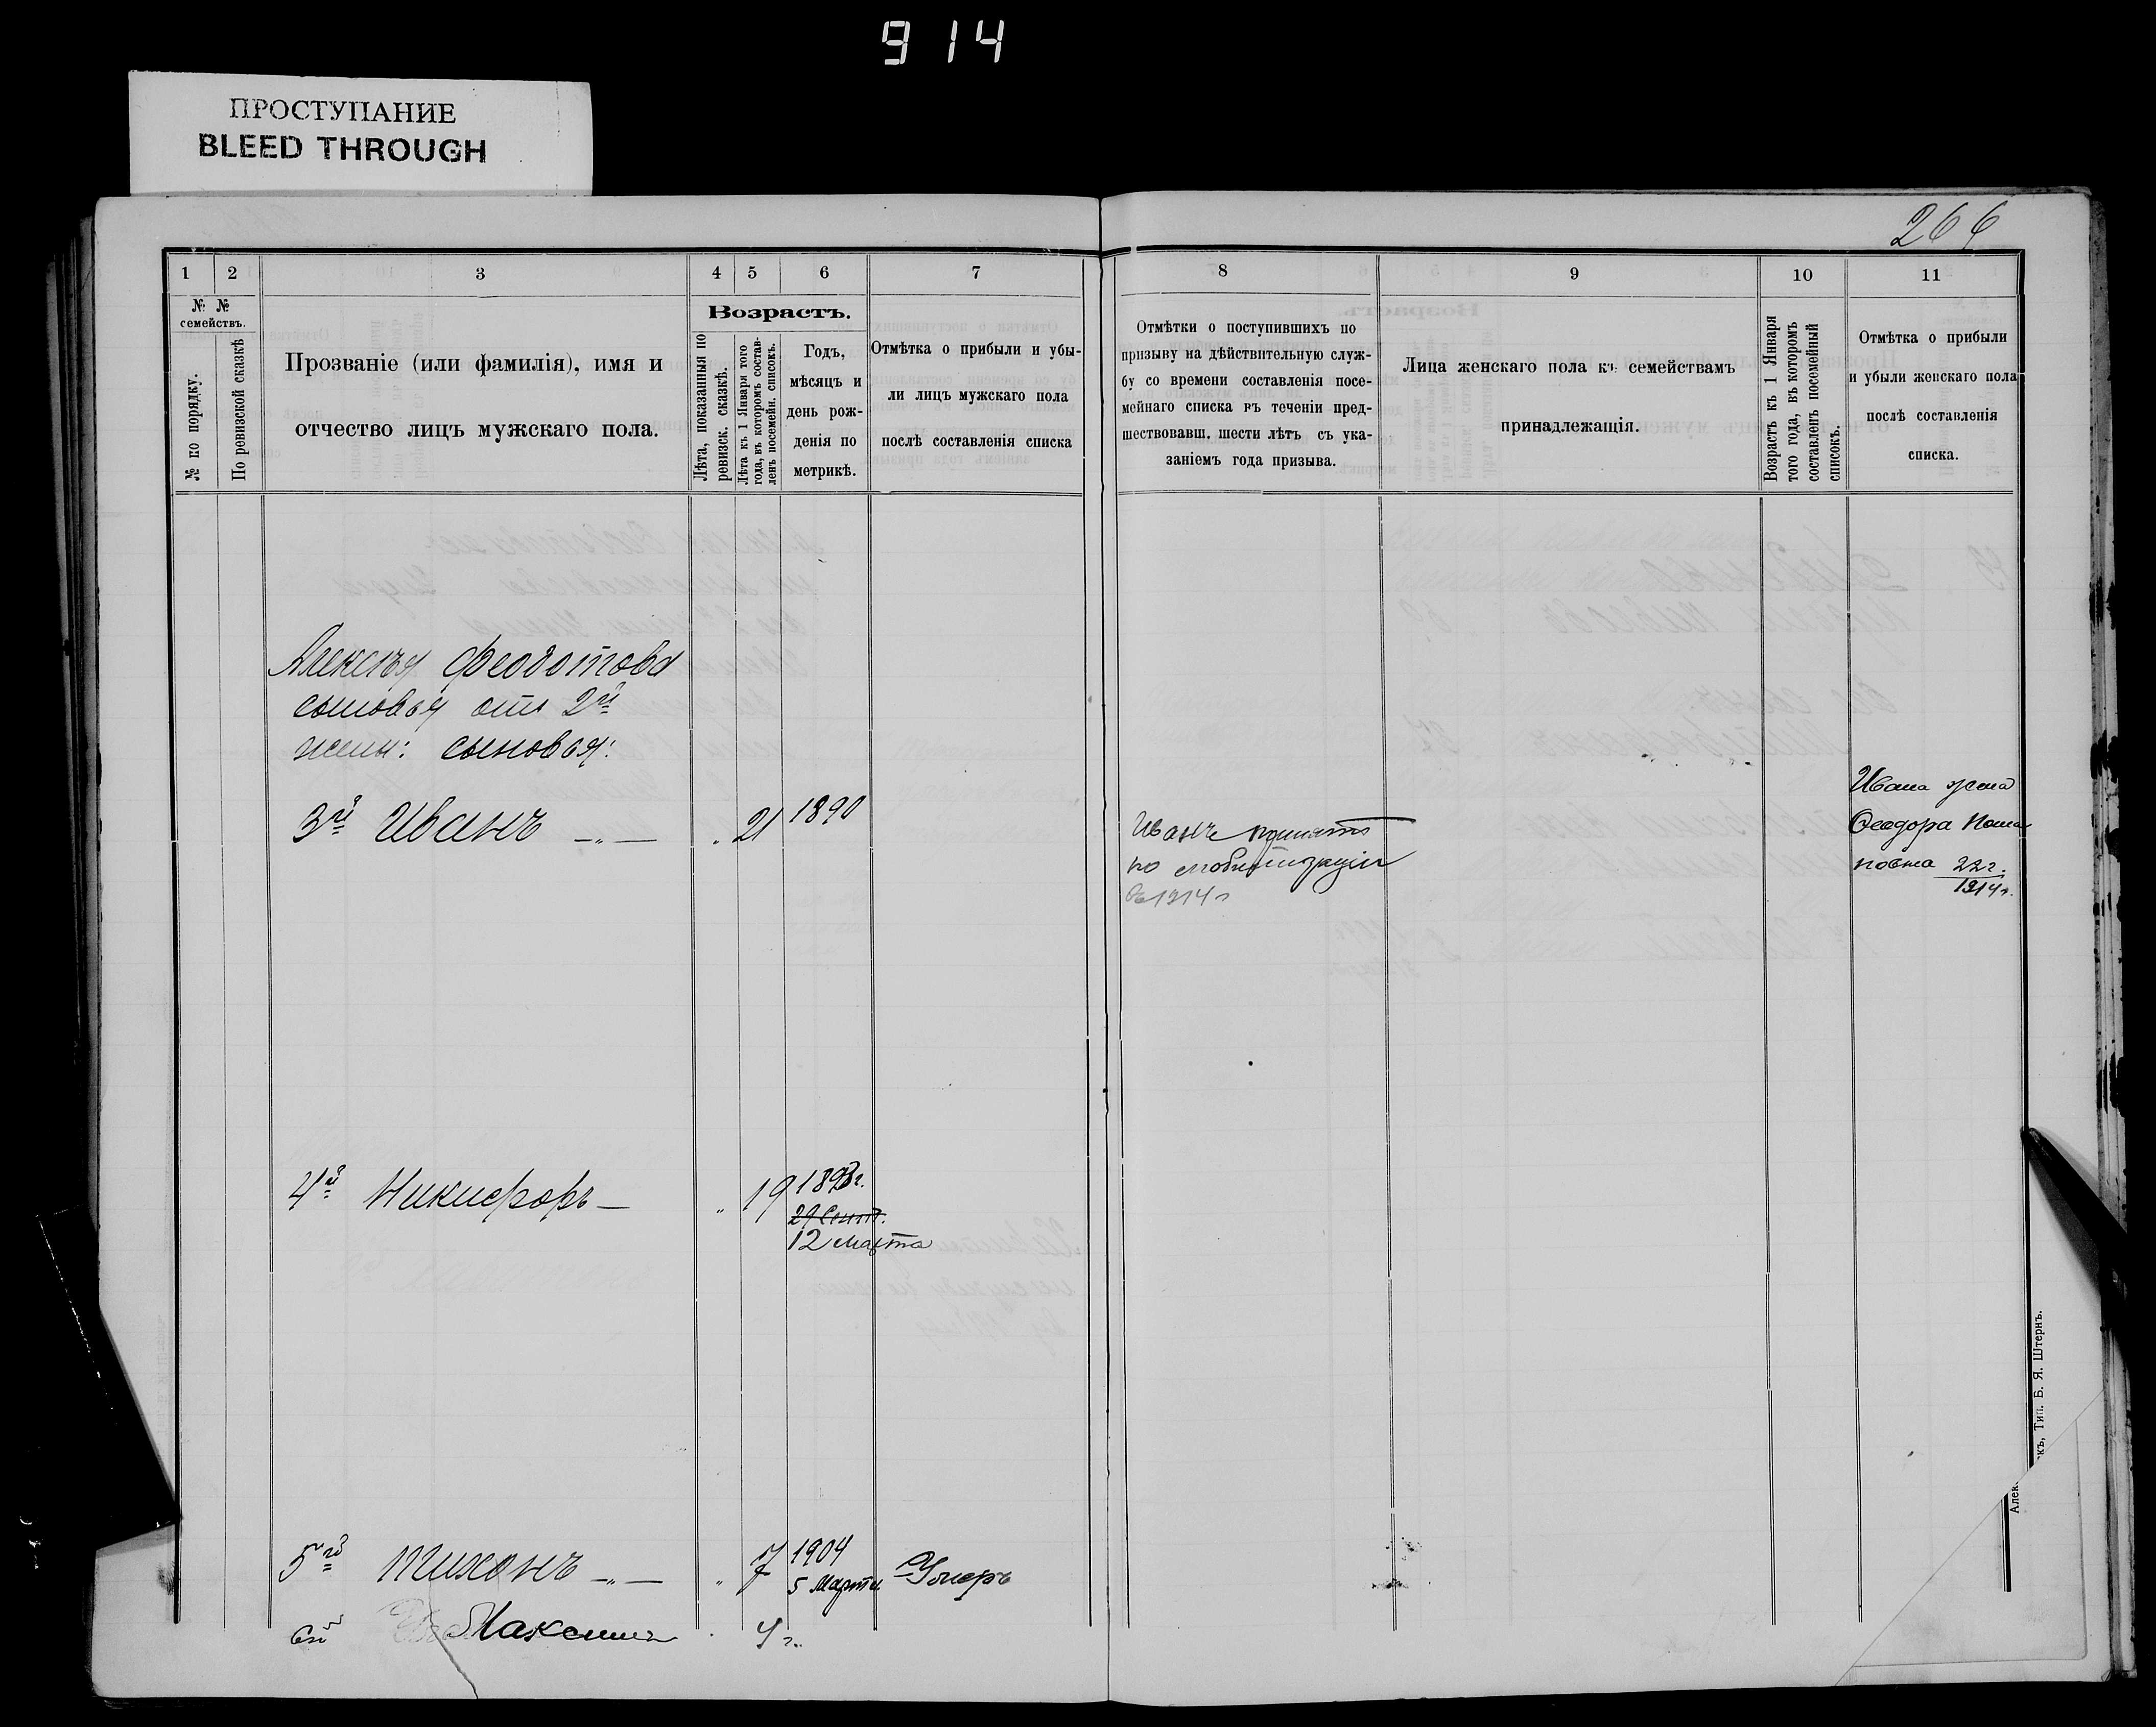 914
ПРОСТУПАНИЕ
BLEED THROUGH
266
1 2 3 4 5 6 7
№ № семействъ.
№ по порядку.
По ревизской сказкѣ
Прозваніе (или фамилія), имя и
отчество лицъ мужскаго пола.
Возрастъ.
Лѣта, показанныя по
ревизск. сказкѣ.
Лѣта къ 1 Января того
года, въ которомъ состав-
ленъ посемейн. списокъ.
Годъ,
мѣсяцъ и
день рож-
денія по
метрикѣ.
Отмѣтка о прибыли и убы-
ли лицъ мужскаго пола
послѣ составленія списка
8 9 10 11
Отмѣтки о поступившихъ по
призыву на дѣйствительную служ-
бу со времени составленія посе-
мейнаго списка въ теченіи пред-
шествовавш. шести лѣтъ съ ука-
заніемъ года призыва.
Лица женскаго пола къ семействамъ
принадлежащія.
Возрастъ къ 1 Января
того года, въ которомъ
составленъ посемейный
списокъ.
Отмѣтка о прибыли
и убыли женскаго пола
послѣ составленія
списка.
Алексѣя Феодотова
сыновья отъ 2й
жены: сыновья:
3й Иванъ —„— „ 21 1890
Иванъ принятъ
по мобилизаціи
въ 1914 г
Ивана жена
Феодора
повна 22 г.
1914 г.
4й Никифоръ — „ 19 1893 г.
29 Сент.
12 Марта
5й Тихонъ —„— „ 7 1904
5 Марта Умеръ
6й Максимъ 4 г.
Тип. Б. Я. Штернъ.